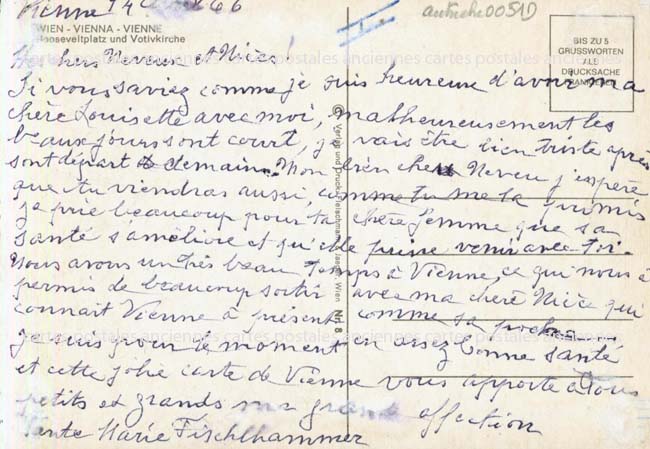 Vienne 14 66
autriche 0051D
WIEN - VIENNA - VIENNE
Rooseveltplatz und Votivkirche
BIS ZU 5
GRUSSWORTEN
ALS
DRUCKSACHE
Mes chers Neveux et Nièce!
Si vous saviez comme je suis heureuse d'avoir ma
chère Louisette avec moi, malheureusement les
beaux jours sont court, je vais être bien triste après
sont départ demain. Mon bien cher Neveu j'espère
que tu viendras aussi, comme tu me la promis
je prie beaucoup pour ta chère femme que sa
santé s'améliore et qu'elle puisse venir avec toi.
Nous avons un très beau temps à Vienne, ce qui nous à
permis de beaucoup sortir avec ma chère Nièce qui
connait Vienne à présent comme sa poche
je suis pour le moment en assez bonne santé
et cette jolie carte de Vienne vous apporte à tous
petits et grands ma grande affection
Tante Marie Fischlhammer
Verlag und Druck Nr. 8
cartes postales anciennes cartes postales anciennes
cartes postales anciennes cartes postales anciennes